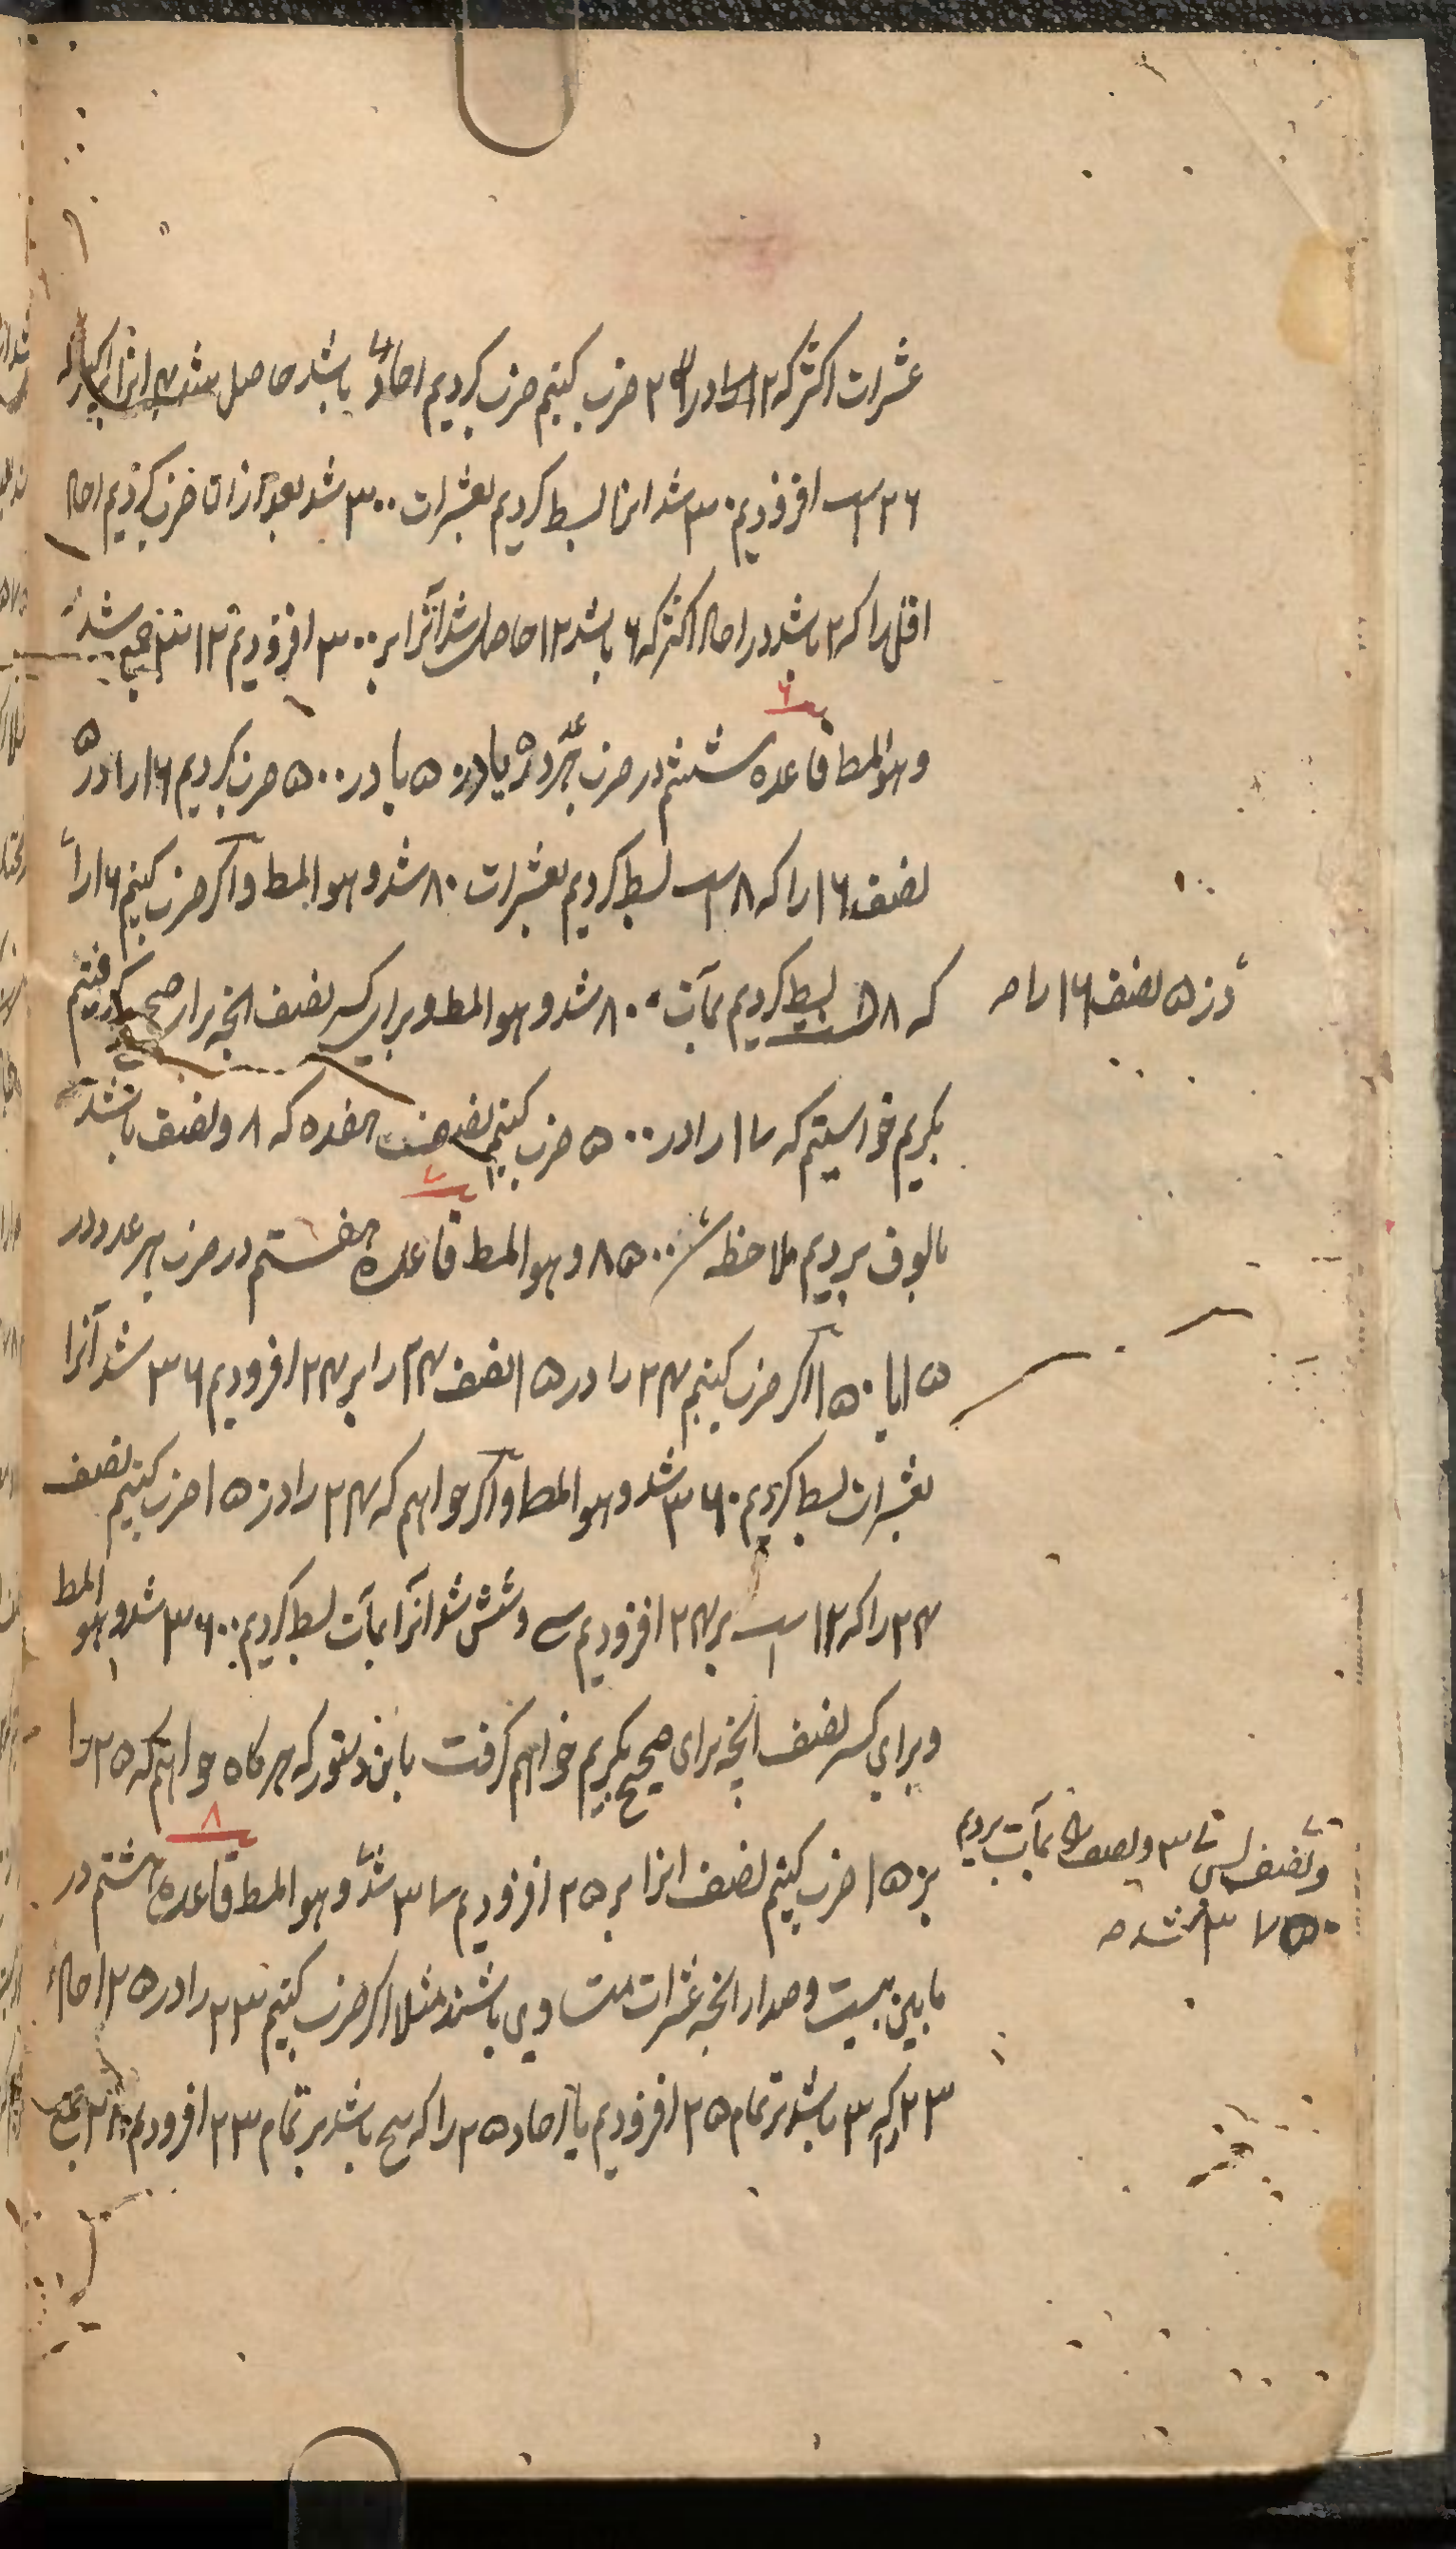 عشرات اکثر که ۲ است در ۲ ضرب کنیم ضرب کردیم احاد باشد حاصل شد ۴ انرا بر
۲۶ است افزودیم ۳۰ شد انرا بسط کردیم بعشرات ۳۰۰ شد بعد ازان ضرب کردیم احاد
اقل را که ۲ باشد در احاد اکثر که ۶ باشد ۱۲ حاصل شد آنرا بر ۳۰۰ افزودیم ۳۱۲ شد
۶
وهو المط قاعده ششم در ضرب هر عدد در ۵ یا در ۵۰ یا در ۵۰۰ ضرب کردیم ۱۶ را در ۵
نصف ۱۶ را که ۸ است بسط کردیم بعشرات ۸۰ شد و هو المط و اکر ضرب کنیم ۱۶ را
در ۵۰ نصف ۱۶ را صح
که ۸ است بسط کردیم بمآت ۸۰۰ شد و هو المط و برای کسر نصف انچه برای صحیح گرفتیم
بکیریم خواستیم که ۱۷ را در ۵۰۰ ضرب کنیم نصف هفده که ۸ و نصف باشد
۷
بالوف بردیم ملاحظه ۸۵۰۰ و هو المط قاعده هفتم در ضرب هر عدد در
۱۵ یا ۱۵۰ اکر ضرب کنیم ۲۴ را در ۱۵ نصف ۲۴ را بر ۲۴ افزودیم ۳۶ شد آنرا
بعشرات بسط کردیم ۳۶۰ شد و هو المط و اکر خواهیم که ۲۴ را در ۱۵۰ ضرب کنیم نصف
۲۴ را که ۱۲ است بر ۲۴ افزودیم سی و شش شد آنرا بمآت بسط کردیم ۳۶۰۰ شد و هو المط
و برای کسر نصف انچه برای صحیح بکیریم خواهیم کرفت باین دستور که هرکاه خواهیم که ۲۵ را
۸
بر ۱۵۰ ضرب کنیم نصف انرا بر ۲۵ افزودیم ۳۷ شد و هو المط قاعده هشتم در
و نصف پس ۳۷ و نصف را بمآت بردیم
۳۷۵۰ شد صح
مابین بیست و صد از انچه عشرات متساوی باشند مثلا اکر ضرب کنیم ۲۳ را در ۲۵ احاد
۲۳ که ۳ باشد بر تمام ۲۵ افزودیم یا احاد ۲۵ را که پنج باشد بر تمام ۲۳ افزودیم